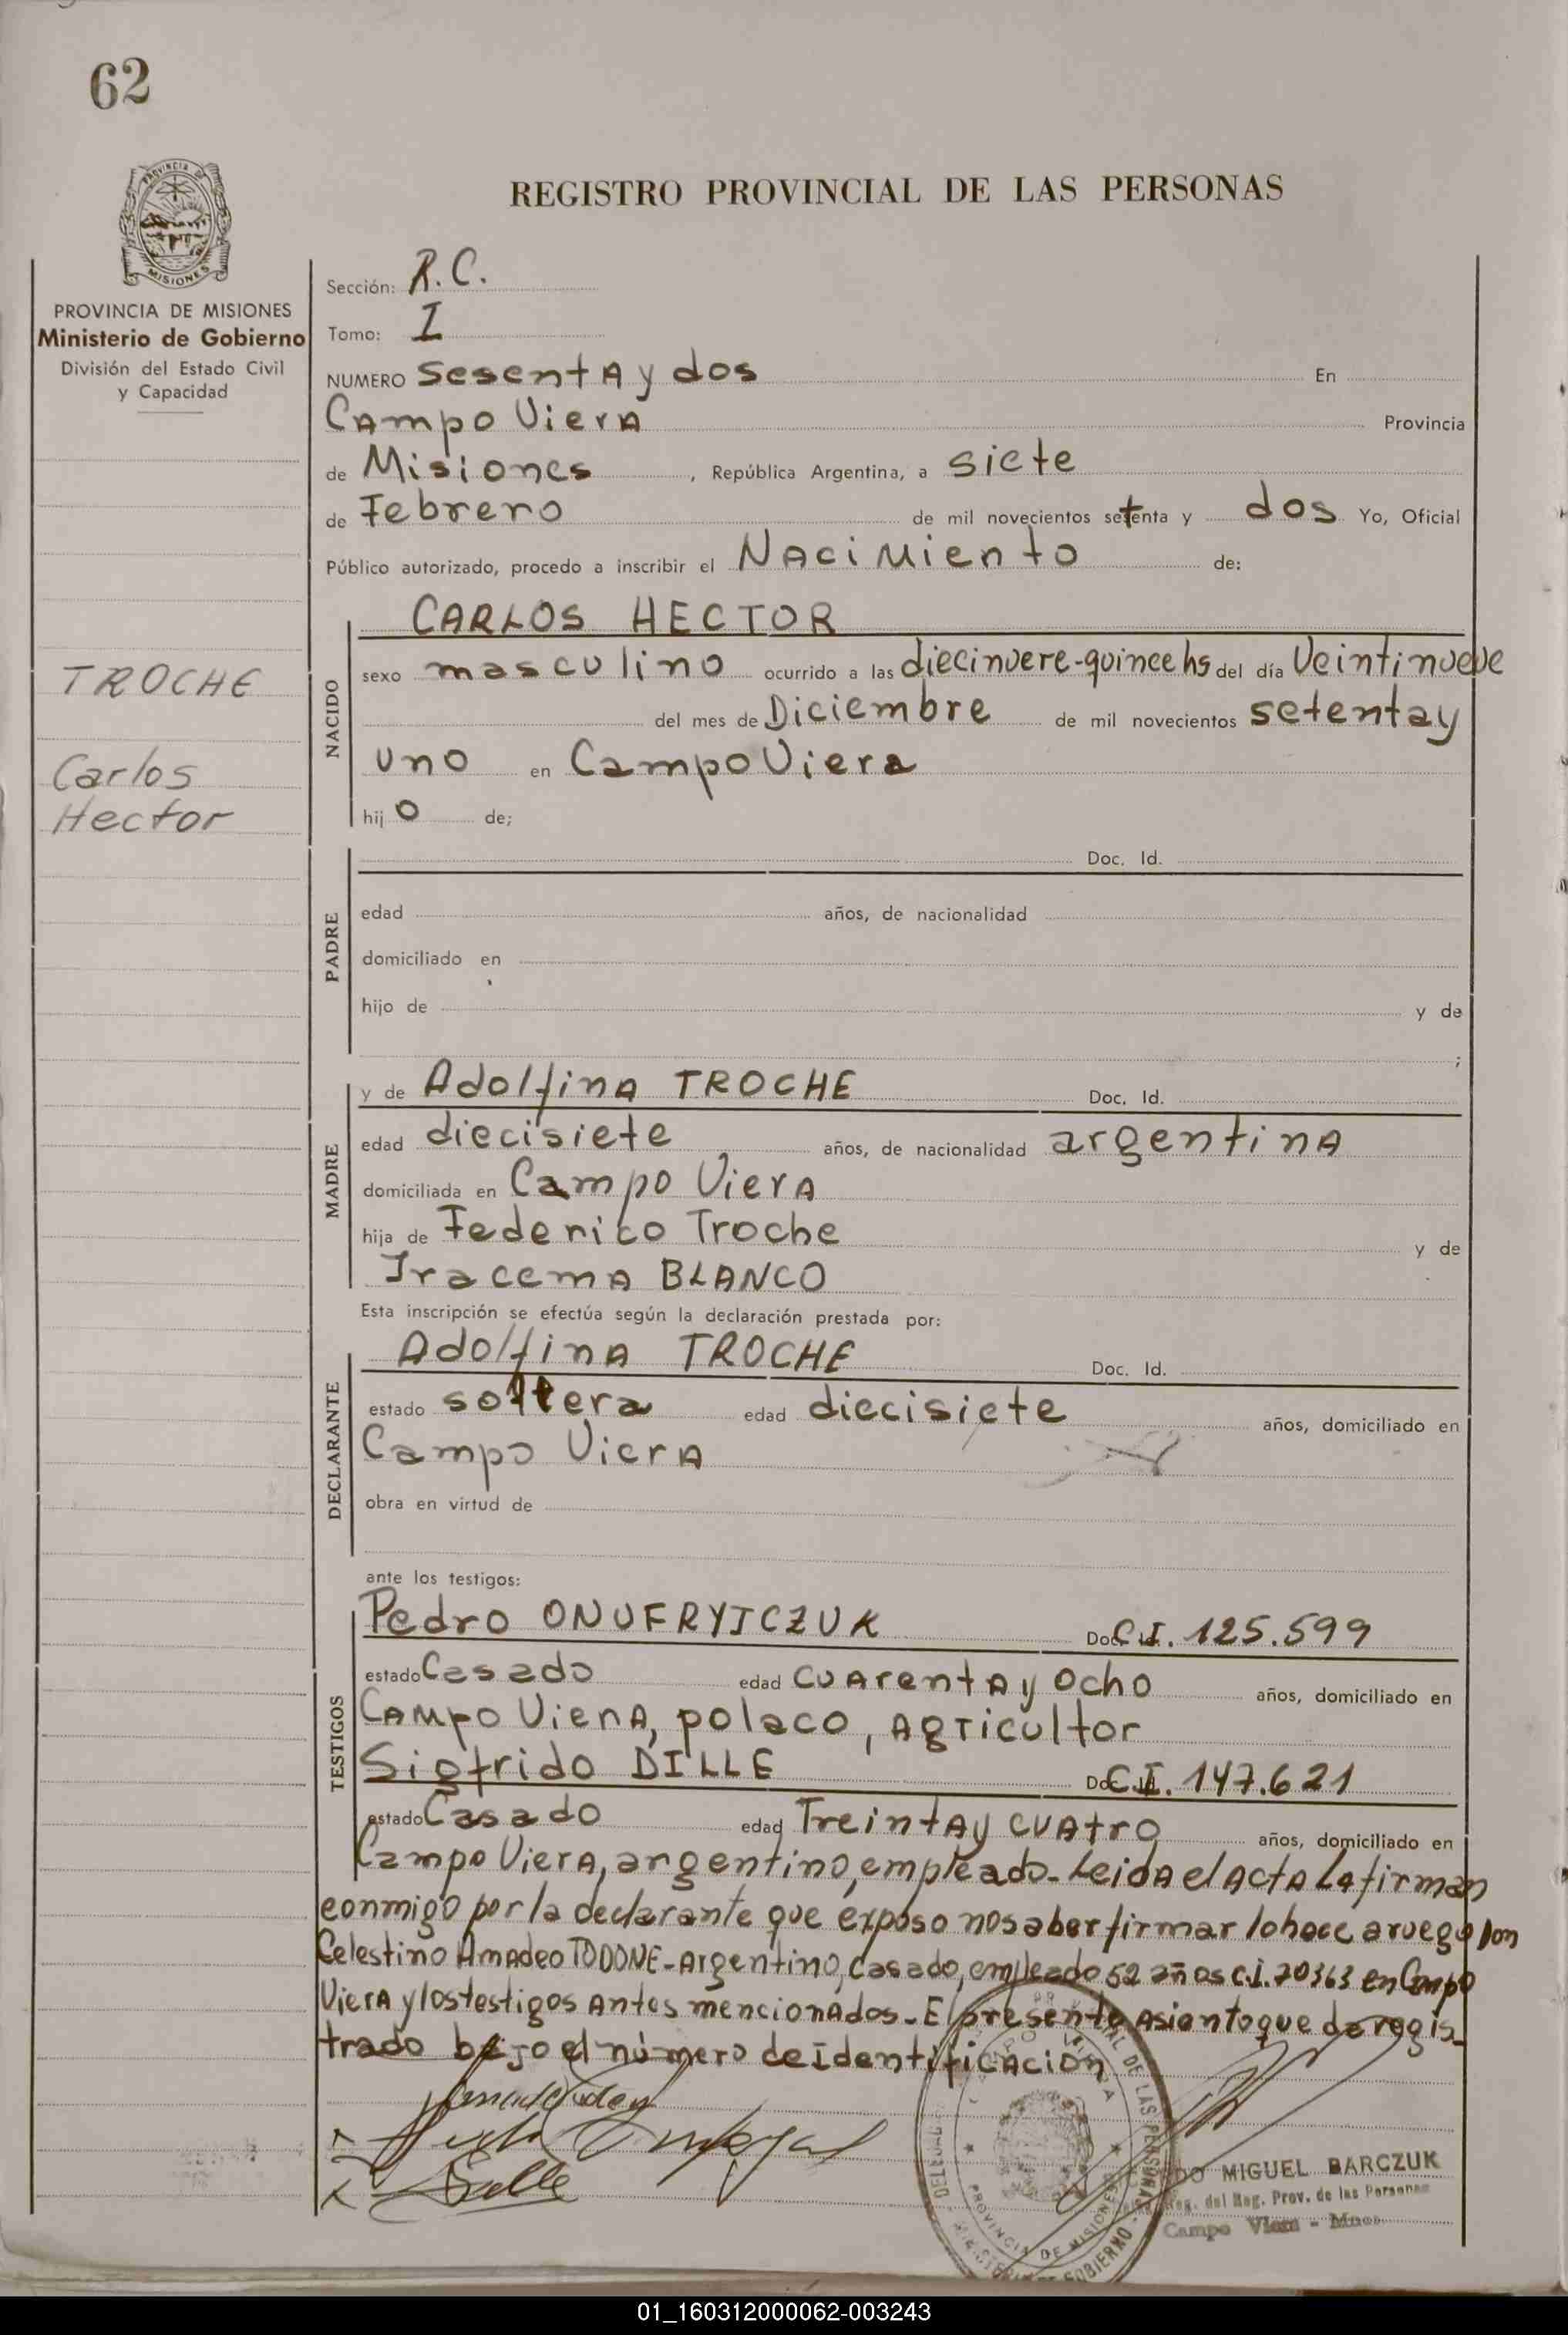 62
PROVINCIA DE
MISIONES
REGISTRO PROVINCIAL DE LAS PERSONAS
PROVINCIA DE MISIONES
Ministerio de Gobierno
División del Estado Civil
y Capacidad
TROCHE
Carlos
Hector
Sección: R.C.
Tomo: I
NUMERO SesentA y dos En
CAmpo VierA Provincia
de Misiones, República Argentina, a siete
de Febrero de mil novecientos setenta y dos Yo, Oficial
Público autorizado, procedo a inscribir el NAciMiento de:
NACIDO
CARLOS HECTOR
sexo masculino ocurrido a las diecinvere-quince hs del día Veintinueve
del mes de Diciembre de mil novecientos setentay
uno en Campo Viera
hijo de;
PADRE
Doc. Id.
edad años, de nacionalidad
domiciliado en
hijo de y de
;
MADRE
y de AdolfinA TROCHE Doc. Id.
edad diecisiete años, de nacionalidad argentinA
domiciliada en Campo VierA
hija de Federico Troche y de
IracemA BLANCO
Esta inscripción se efectúa según la declaración prestada por:
DECLARANTE
AdolfinA TROCHE Doc. Id.
estado soltera edad diecisiete años, domiciliado en
Campo VierA
obra en virtud de
ante los testigos:
TESTIGOS
Pedro ONUFRYJCZUK Doc. C.I. 125.599
estado Casado edad CuArentAy Ocho años, domiciliado en
CAMpo VierA, polaco, AgRicultor
Sigfrido DILLE Doc. C.I. 147.621
estado Casado edad TreintAy CUAtro años, domiciliado en
Campo VierA, argentino, empleado. LeidA el ActA La firman
conmigo por la declarante que expuso no saber firmar lo hace a ruego Don
Celestino AmAdeo TODONE-Argentino, Casado, empleado 52 años C.I. 70363 en Campo
VierA y los testigos Antes mencionAdos. El presente Asiento que da regis-
trado bajo el número de IdentificAción
Dille
PROVINCIA DE MISIONES
MIGUEL BARCZUK
del Reg. Prov. de las Personas
Campo Viera - Mnes.
01_160312000062-003243